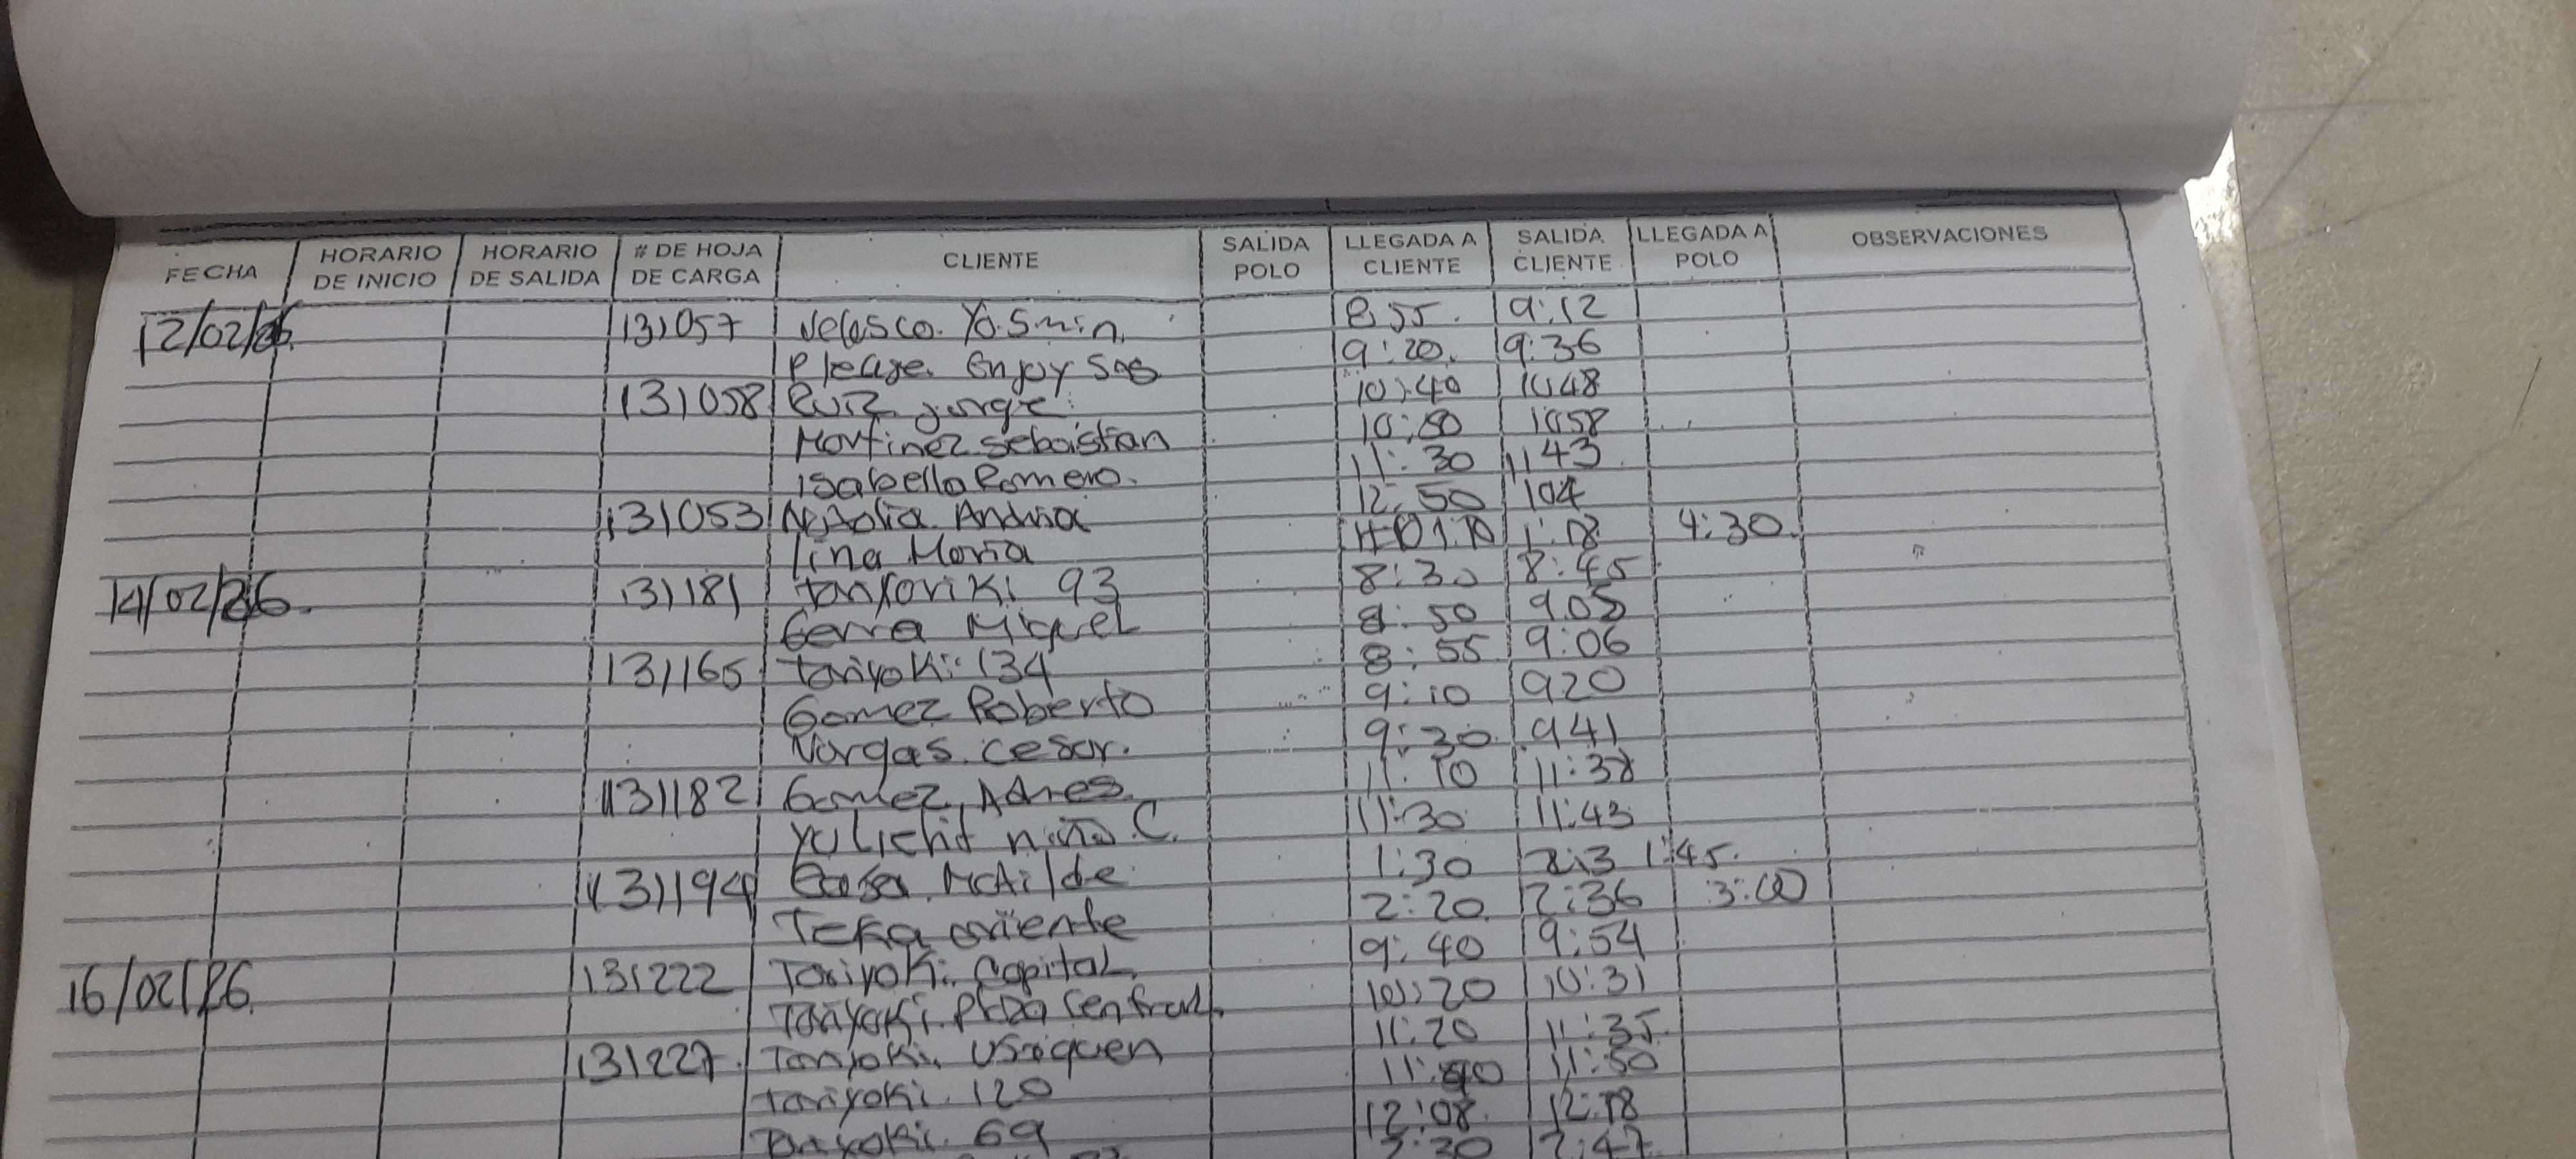 FECHA HORARIO DE INICIO HORARIO DE SALIDA # DE HOJA DE CARGA CLIENTE SALIDA POLO LLEGADA A CLIENTE SALIDA CLIENTE LLEGADA A POLO OBSERVACIONES
12/02/26. 131057 Velasco. Yasmin. 8:55. 9:12
Please. Enjoy Sas 9:20. 9:36
131058 Ruiz Jorge. 10:40 10:48
Martinez Sebaistian 10:50 10:58
Isabella Romero. 11:30 11 43
131053 Natolia Andrea 12:50 104
Lina Maria 1:10 1:18 4:30.
14/02/26. 131181 93 8:30 8:45
Miguel 8:50 9.05
131165 Tariyoki 134 8:55 9:06
Gomez Roberto 9:10 920
Vargas. Cesar. 9:30 941
131182 Gomez, Adres. 11:10 11:38
niño C. 11:30 11:43
131194 Matilde 1:30 1:45.
Teka oriente 2:20. 2:36 3:00
16/02/26. 131222 Tariyoki. Capital. 9:40 9:54
Tariyaki. Plaza Central. 10:20 10:31
131227. Tariyoki. Usaquen 11:20 11:35.
Tariyoki. 120 11:40 11:50
Tariyoki. 69 12:08. 12:18
2:30 2:47.